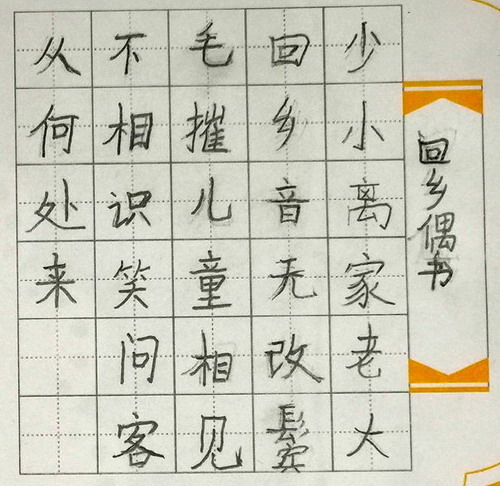 回乡偶书
少小离家老大
回乡音无改鬓
毛摧儿童相见
不相识笑问客
从何处来